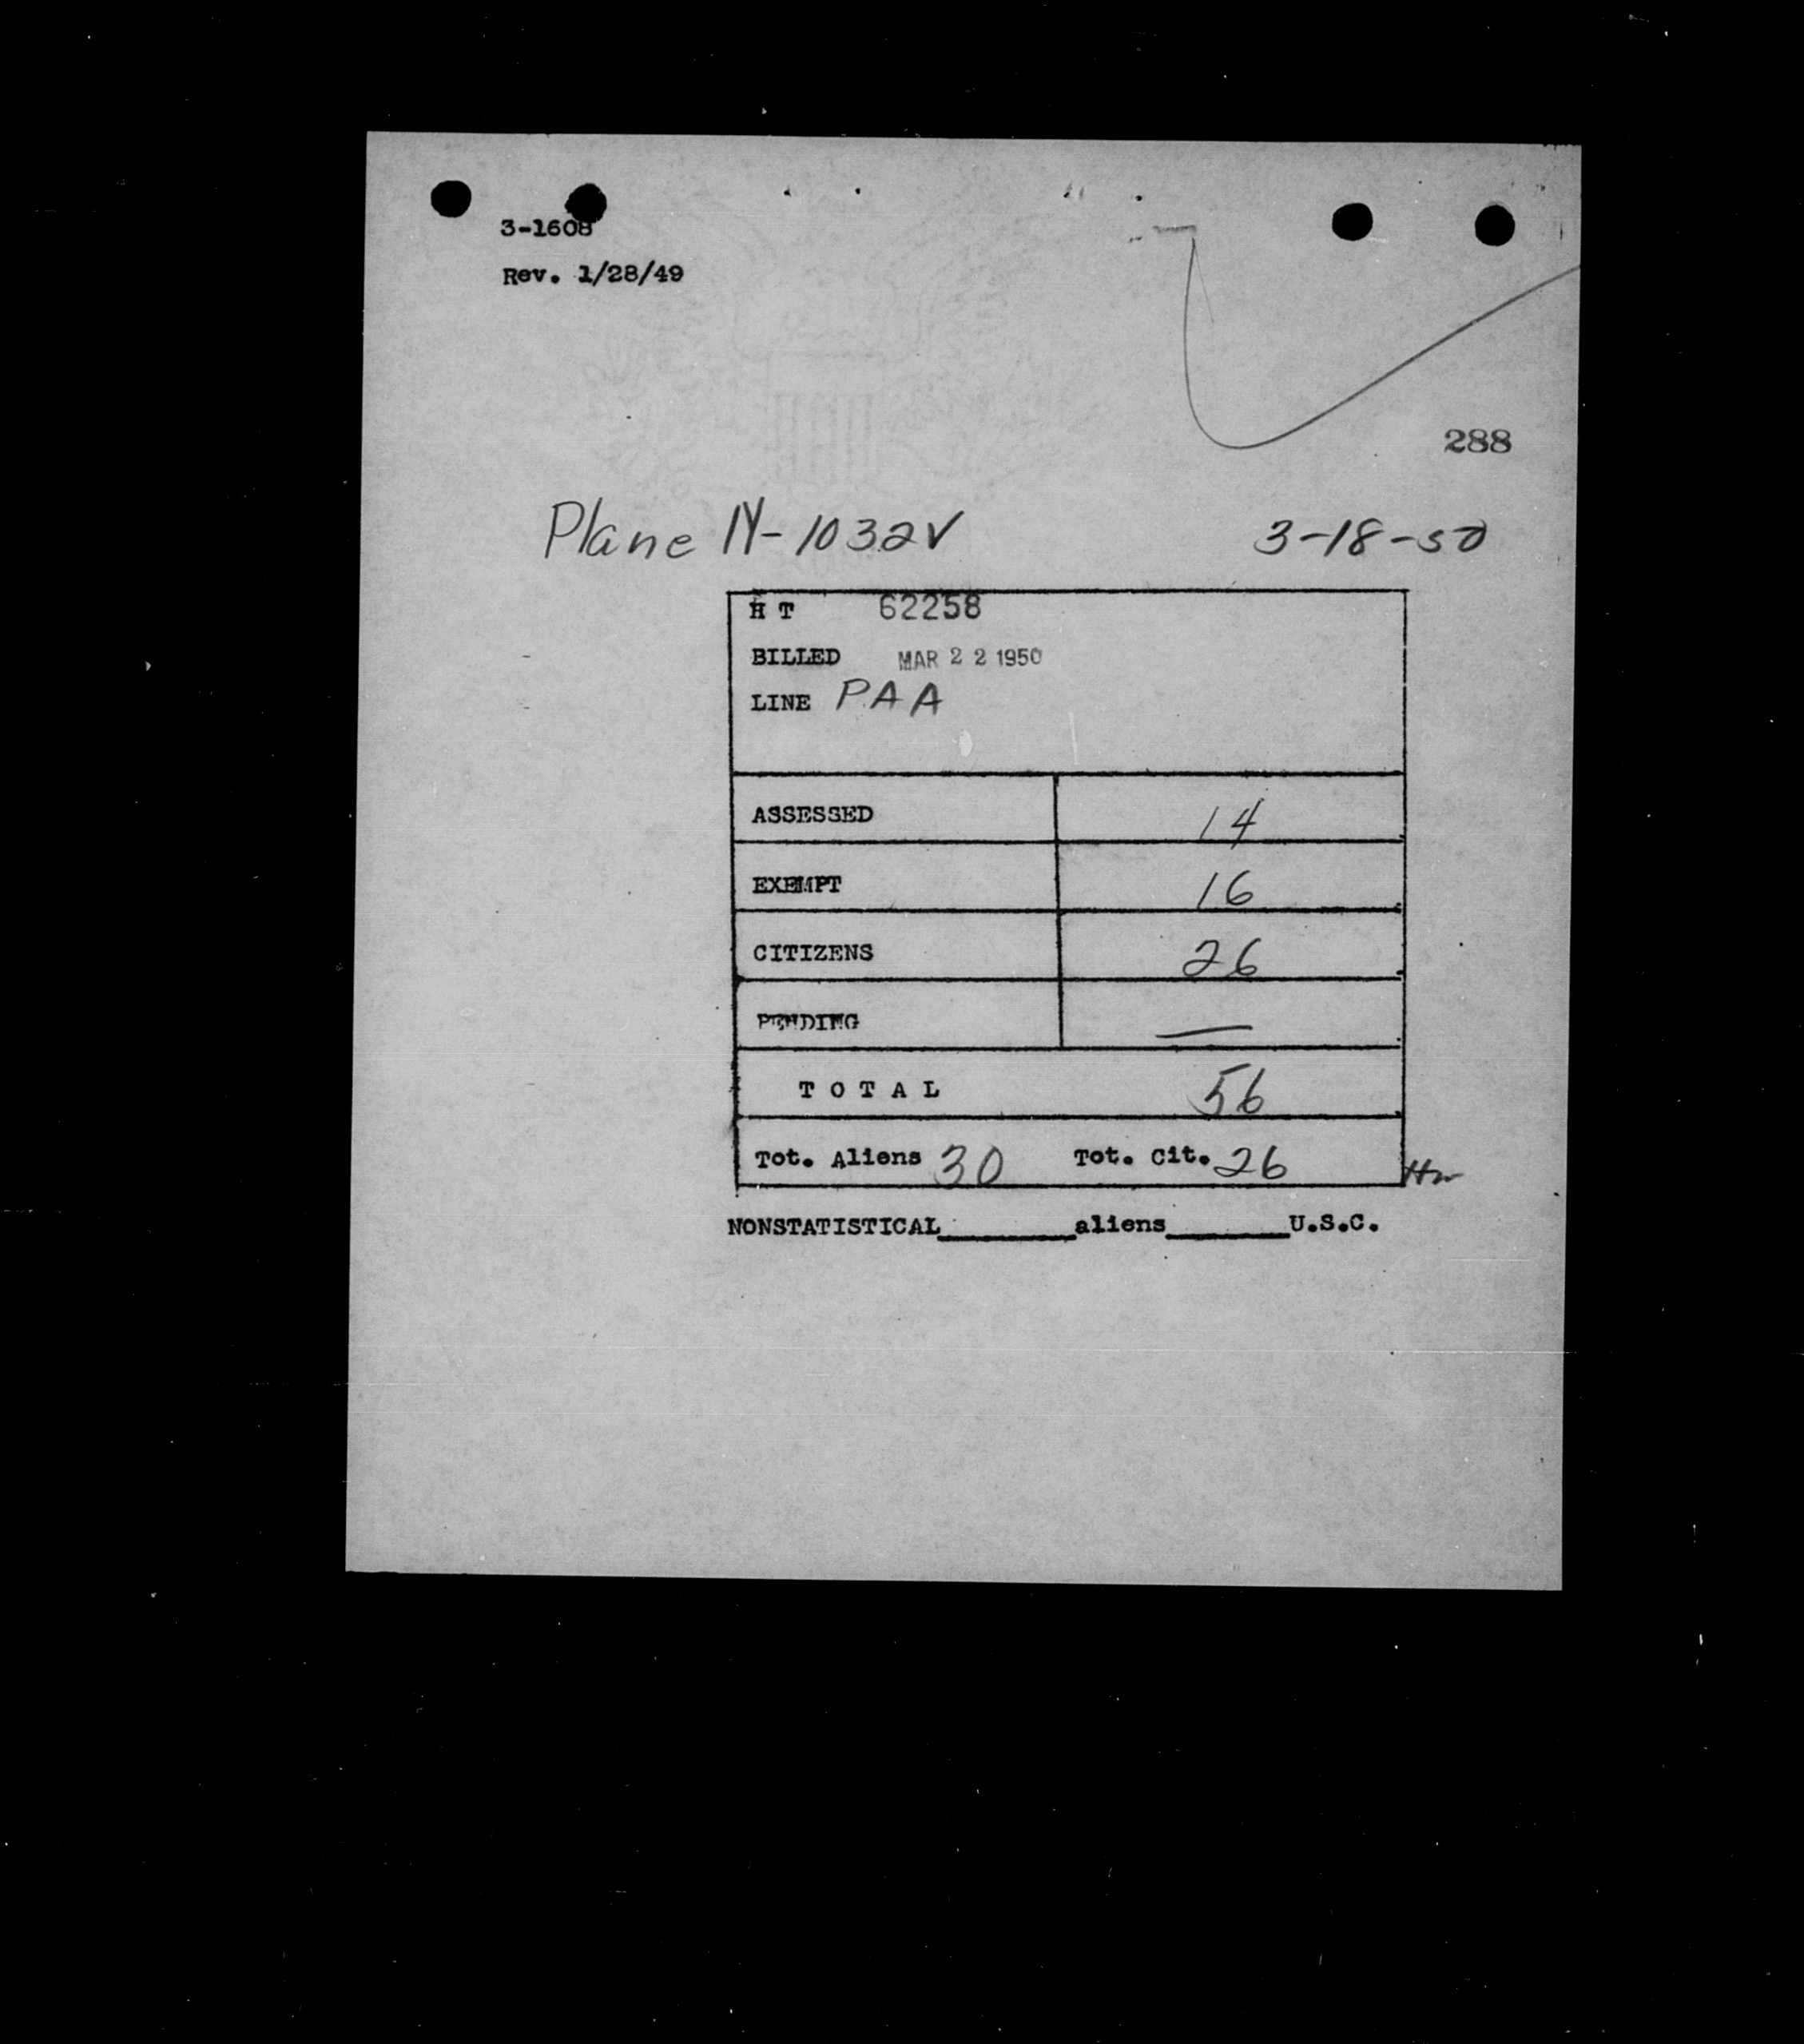 3-1608
Rev. 1/28/49
288
Plane N-1032V 3-18-50
H T 62258
BILLED MAR 22 1950
LINE PAA
ASSESSED 14
EXEMPT 16
CITIZENS 26
PENDING —
TOTAL 56
Tot. Aliens 30 Tot. Cit. 26
NONSTATISTICAL________aliens_______U.S.C.